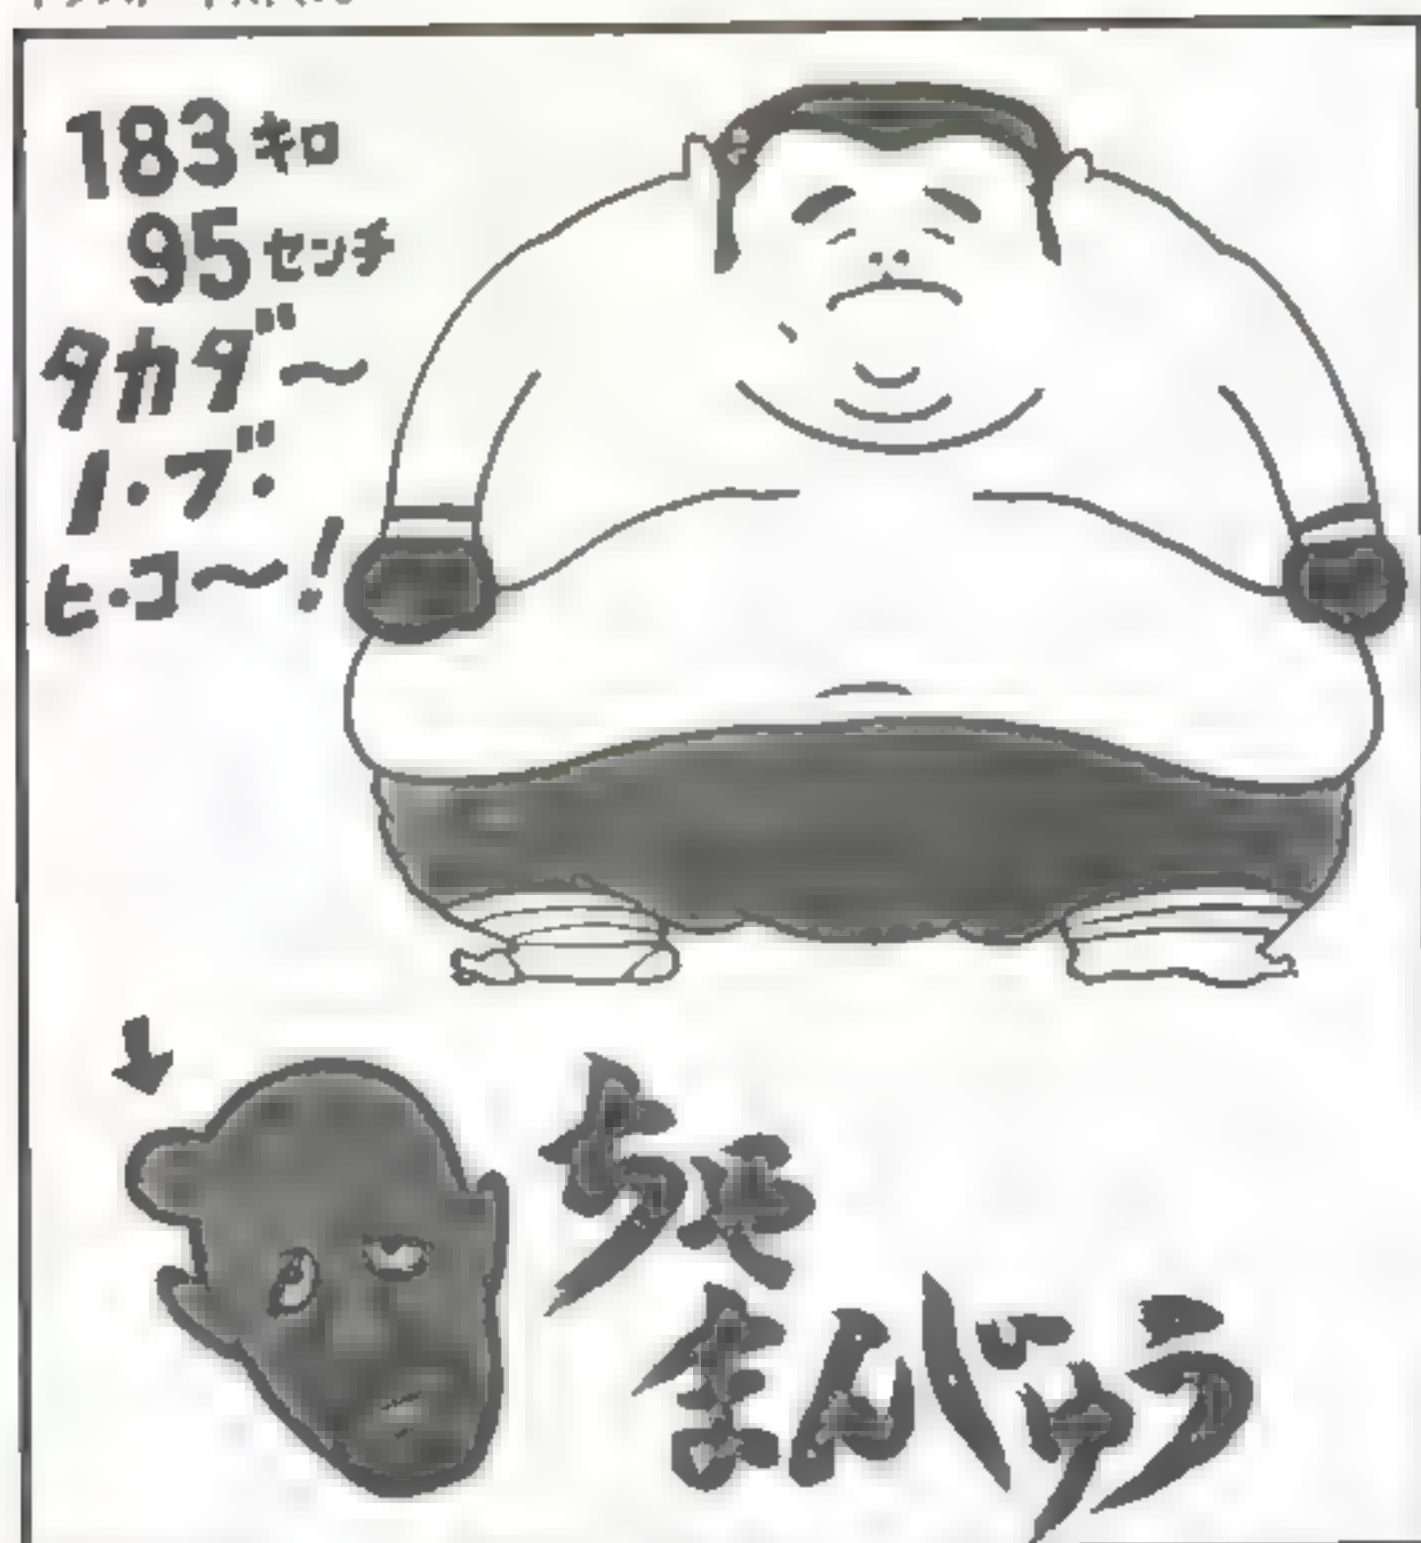 183キロ
95センチ
タカダ〜
ノ・ブ・
ヒ・コ〜!
ちゃ
まんじゅう